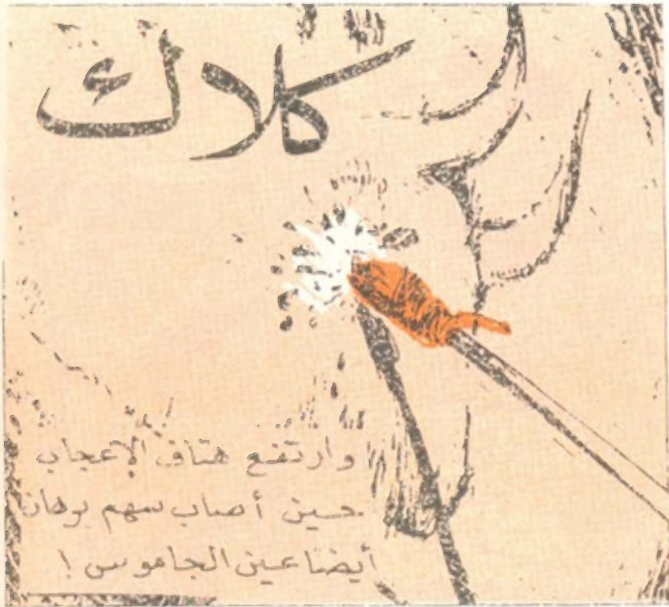 كلاك
وارتفع هتاف الإعجاب
حين أصاب سهم برهان
أيضا عين الجاموس !